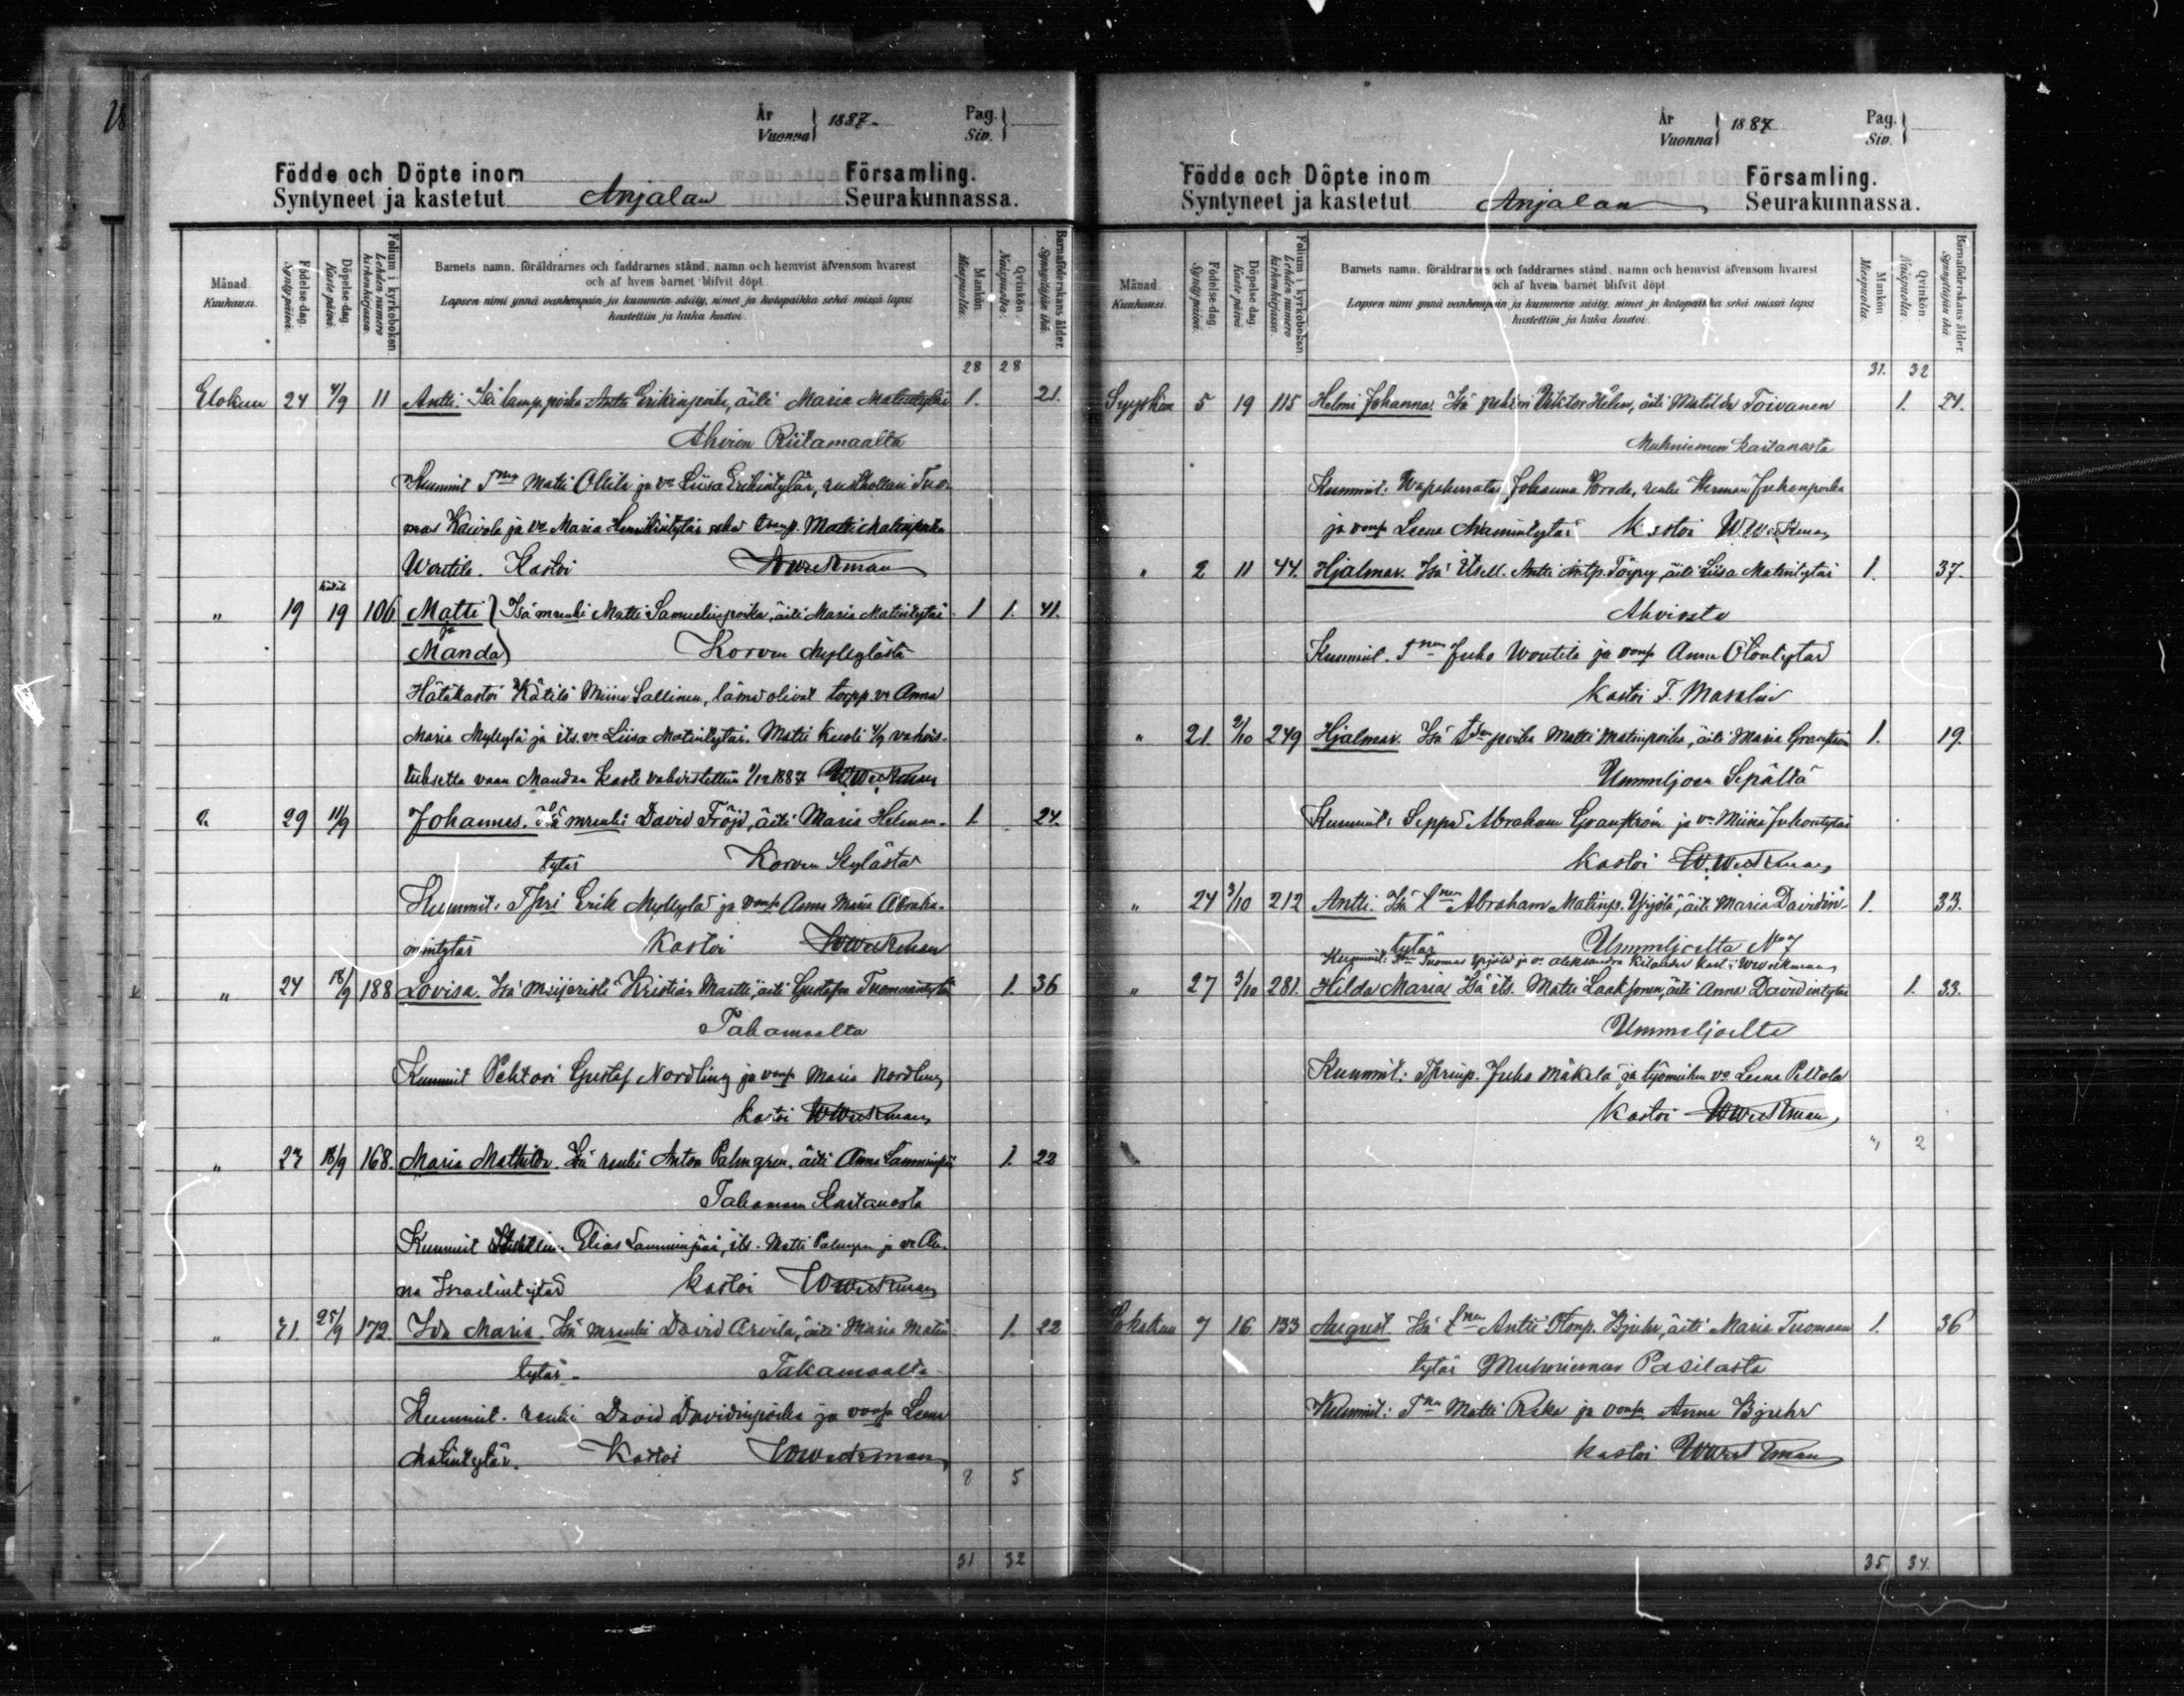 28
År
Vuonna } 1887. Pag.
Siv. }
Födde och Döpte inom Församling.
Syntyneet ja kastetut Anjalan Seurakunnassa.
Månad. Kuukausi.
Födelse-dag. Syntypäivä.
Döpelse-dag. Kaste päivä.
Folium i kyrkoboken. Lehden numero kirkonkirjassa.
Barnets namn, föräldrarnes och faddrarnes stånd, namn och hemvist äfvensom hvarest
och af hvem barnet blifvit döpt.
Lapsen nimi ynnä vanhempain ja kummein sääty, nimet ja kotopaikka sekä missä lapsi
kastettiin ja kuka kastoi.
Mankön. Miespuolta.
Qvinkön. Naispuolta.
Barnaföderskans ålder. Synnyttäjän ikä.
28 28
Elokuu 24 4/9 11 Antti. Isä lamp.poika Antti Erikinpoika, äiti Maria Matintytär 1. 21.
Ahvion Riitamaalta
Kummit Matti Ollila ja vo Liisa Erikintytär, Tuo-
mas Kaivola ja vo Maria Henrikintytär sekä Matti Matinpoika
Woutila. Kastoi WWeckman
" 19 19 106 Matti } Isä mrenki Matti Samuelinpoika, äiti Maria Matintytär 1 1. 41.
ja
Manda } Korven Myllylästä
Hätäkastoi Kätilö Miina Sallinen, läsnä olivat torpp. vo Anna
Maria Myllylä ja its. vo Liisa Matintytär. Matti kuoli 4/9 vahvis-
tuksetta vaan Mandan kaste vahvistettiin 1/12 1887 WWeckman
29 11/9 Johannes. Isä mrenki David Fröjd, äiti Maria Heleman- 1. 24.
tytär Korven Kylästä
Kummit: Erik Myllylä ja vaimo Anna Miina Abraha-
mintytär Kastoi WWeckman
" 24 18/9 188 Lovisa. Isä meijeristi Kristian Martti, äiti Gustafva Tuomaantytär 1. 36
Takamaalta
Kummit Pehtori Gustaf Nordling ja vaimo Maria Nordling
kastoi WWeckman
" 27 18/9 168. Maria Mathilda. Isä renki Anton Palmgren, äiti Anna Lamminpää 1. 22
Takamaan Kartanosta
Kummit Elias Lamminpää, its. Matti Palmgren ja vo An-
na Israelintytär kastoi WWeckman
" 21. 25/9 172. Ida Maria. Isä mrenki David Arvila, äiti Maria Matin- 1. 22
tytär. Takamaalta
Kummit. renki David Davidinpoika ja vaimo Leena
Matintytär. Kastoi WWeckman
8 5
31 32
År
Vuonna } 1887 Pag.
Siv. }
Födde och Döpte inom Församling.
Syntyneet ja kastetut Anjalan Seurakunnassa.
Månad. Kuukausi.
Födelse-dag. Syntypäivä.
Döpelse-dag. Kaste päivä.
Folium i kyrkoboken. Lehden numero kirkonkirjassa.
Barnets namn, föräldrarnes och faddrarnes stånd, namn och hemvist äfvensom hvarest
och af hvem barnet blifvit döpt.
Lapsen nimi ynnä vanhempain ja kummein sääty, nimet ja kotopaikka sekä missä lapsi
kastettiin ja kuka kastoi.
Mankön Miespuolta.
Qvinkön Naispuolta.
Barnaföderskans ålder. Synnyttäjän ikä.
31. 32
Syyskuu 5 19 115 Helmi Johanna. Isä pehtori Viktor Helen, äiti Matilda Toivanen 1. 21.
Muhniemen kartanosta
Kummit: Johanna Brode, renki Herman Juhonpoika
ja vaimo Leena Maunintytär Kastoi W.Weckman
" 2 11 44. Hjalmar. Isä Itsell. Antti Antp. Töyry, äiti Liisa Matintytär 1. 37.
Ahviosta
Kummit. Juho Woutila ja vaimo Anna
kastoi F. Masalin
" 21. 2/10 249 Hjalmar. Isä poika Matti Matinpoika, äiti Maria Granström 1. 19.
Ummeljoen Sepältä
Kummit: Seppä Abraham Granström ja vo Miina Juhontytär
kastoi W.Weckman
" 24 3/10 212 Antti. Isä Abraham Matinp. Yrjölä, äiti Maria Davidin- 1. 33.
tytär Ummeljoelta No 7
Kummit: Tuomas Yrjölä ja vo Aleksandra Kilander Kast: WWeckman
" 27 3/10 281. Hilda Maria Isä its. Matti Laaksonen, äiti Anna Davidintytär 1. 33.
Ummeljoelta
Kummit: Juho Mäkelä ja työmiehen vo Leena Peltola
Kastoi WWeckman
" 2
Lokakuu 7 16 133 August. Isä Antti Bjuhr, äiti Maria Tuomaan 1. 36
tytär Muhniemen Pasilasta
Kummit: Matti Raka ja vaimo Anna Bjuhr
kastoi WWeckman
35. 34.